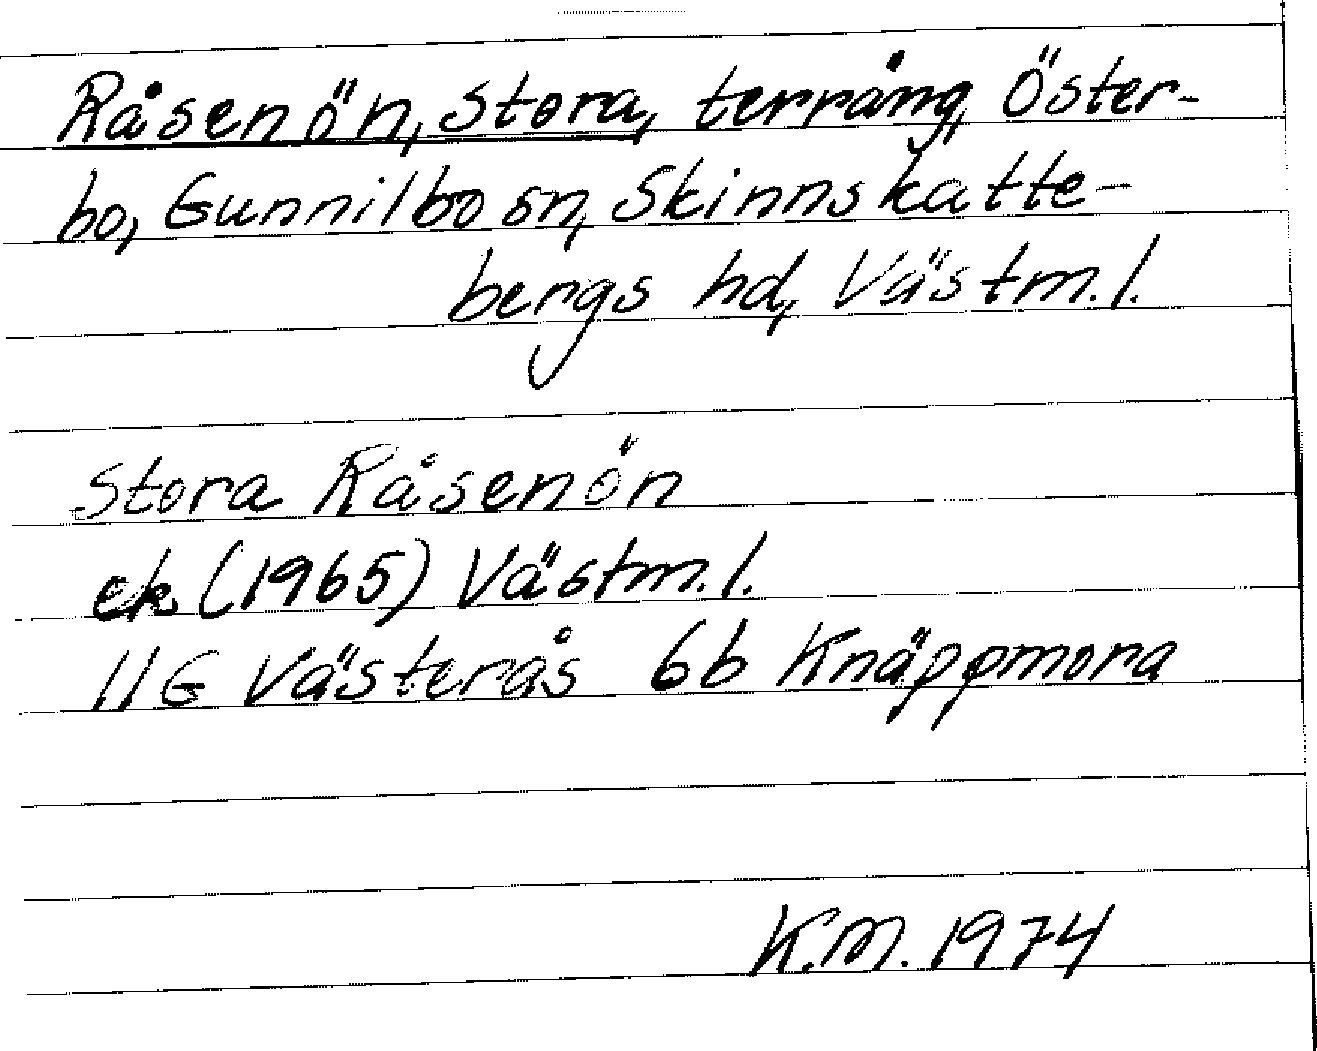 Råsenön, Stora, terräng, Öster-
bo, Gunnilbo sn, Skinnskatte-
bergs hd, Västm.l.
Stora Råsenön
ek (1965) Västm.l.
11G Västerås 6b Knäppmora
K.M. 1974